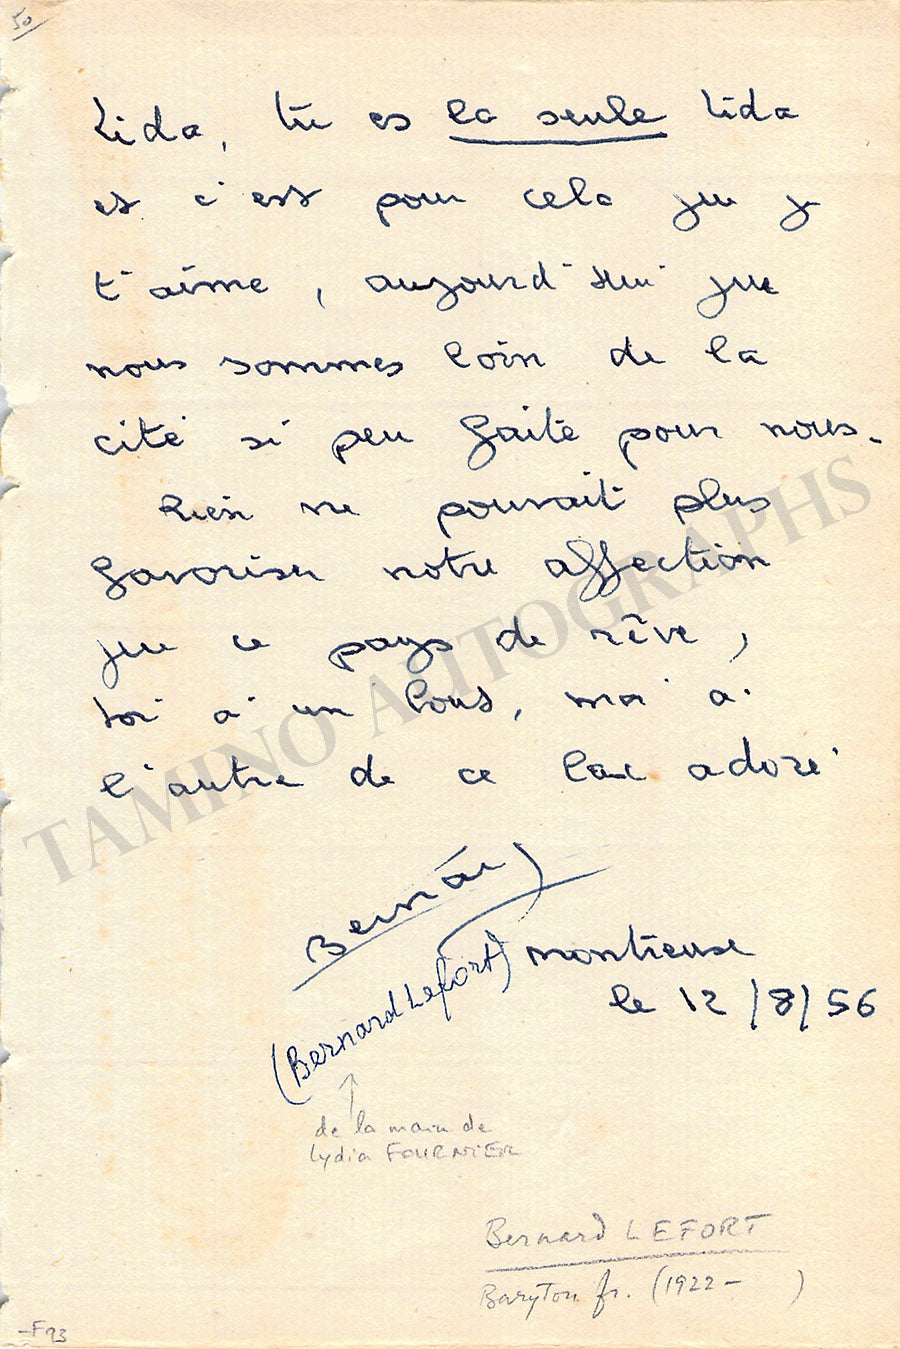 50
Lida, tu es la seule Lida
et c'est pour cela que je
t'aime, aujourd'hui que
nous sommes loin de la
cité si peu faite pour nous.
Rien ne pouvait plus
favoriser notre affection
que ce pays de rêve,
toi à un bout, moi à
l'autre de ce lac adoré
Bernard
(Bernard Lefort)
Montreux
le 12/8/56
de la main de
Lydia FOURNIER
Bernard LEFORT
Baryton fr. (1922- )
-F93
TAMINO AUTOGRAPHS